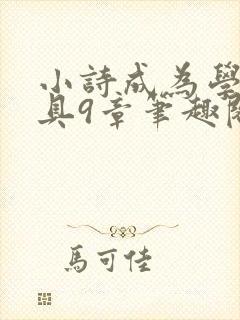 小詩成為學
具9章筆趣閱
馬可佳